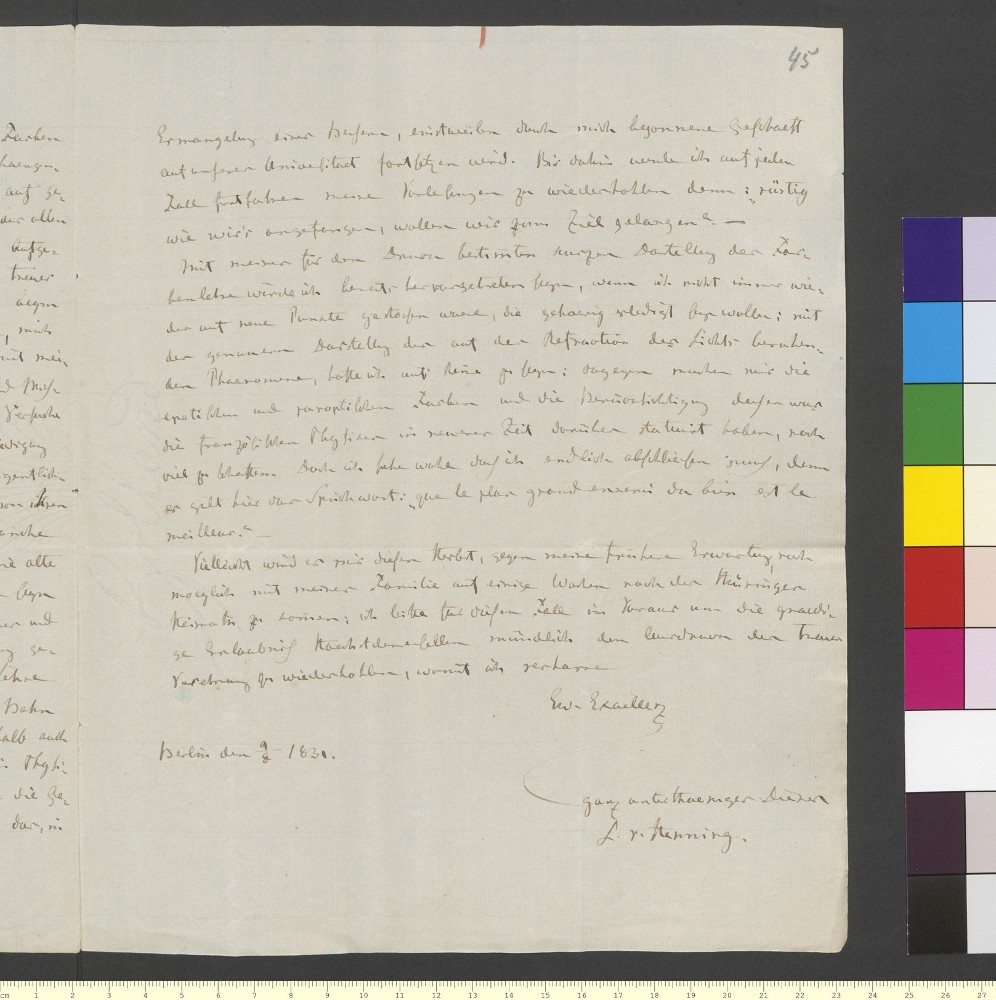 45
Farben
auf ge-
aus allen
treuer
gegen
, mich
mit mei-
Versuche
alte
seyn
und
ge-
Lehre
Bahn
halb auch
Physi-
die Ge-
dar, in
Ermangelung eines Bessern, einstweilen durch mich begonnene Geschaeft
auf unserer Universitaet fortsetzen wird. Bis dahin werde ich auf jeden
Fall fortfahren meine Vorlesungen zu wiederhohlen denn: „rüstig
wie wir's angefangen, wollen wir zum Ziel gelangen“ —
Mit meiner für den Druck bestimten kurzen Darstellung der Far-
benlehre würde ich bereits hervorgetreten seyn, wenn ich nicht immer wie-
der auf neue Punkte gestossen waere, die gehoerig erledigt seyn wollen; mit
der genauern Darstellung der auf der Refraction des Lichts beruhen-
den Phaenomene, hoffe ich aufs Reine zu seyn; dagegen machen mir die
epoptischen und paroptischen Farben und die Berücksichtigung dessen was
die französischen Physiker in neuerer Zeit darüber statuirt haben, noch
viel zu schaffen. Doch ich sehe wohl daß ich endlich abschliessen muß, denn
es gilt hier das Sprichwort: „que le plus grand ennemi du bien est le
meilleur.“ —
Vielleicht wird es mir diesen Herbst, gegen meine frühere Erwartung, noch
moeglich mit meiner Familie auf einige Wochen nach der Thüringer
Heimath zu kommen; ich bitte für diesen Fall im Voraus um die gnaedi-
ge Erlaubniß Hoechstdenenselben mündlich den Ausdruck der treuen
Verehrung zu wiederhohlen, womit ich verharre
Ew. Excellenz
Berlin den 9/8 1831.
ganz unterthaeniger Diener
L. v. Henning.